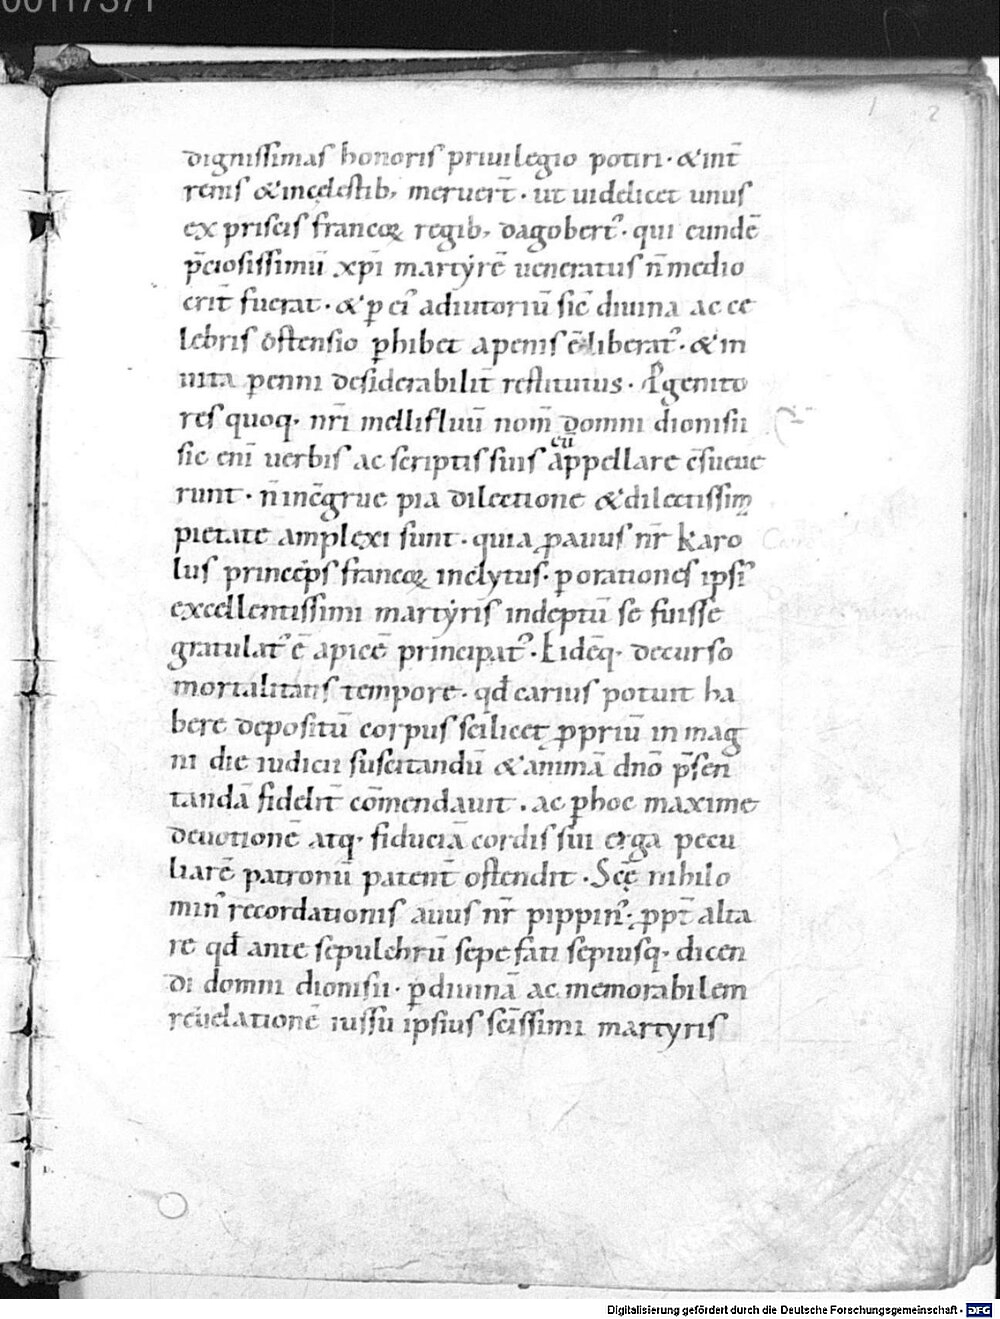 00117371
1 2
dignissimas honoris priuilegio potiri · & int̄
renis & incęlestib; meruer̄t · ut uidelicet unus
ex priscis francoꝝ regib; dagobert᾿ · qui eundē
p̄ciosissimū xp̄i martẏrē ueneratus n̄ medio
crit̄ fuerat · & ꝑ ei᾿ adiutoriū sic̄ diuina ac ce
lebris ostensio ꝑhibet apenis ē liberat᾿ · & in
uita ꝑenni desiderabilit̄ restitutus · P̄genito
res quoq· nr̄i mellifluū nom̄ domni dionisii
sic eni᷒ uerbis ac scriptis suis eū appellare c̄sueue
runt · n̄ incōgrue pia dilectione & dilectissim
pietate amplexi sunt · quia ꝓauus nr̄ karo
lus princeps francoꝝ inclytus · ꝑ orationes ipsi᾿
excellentissimi martẏris indeptū se fuisse
gratulat᾿ ē apicē principat᾿ · Eidēq· decurso
mortalitatis tempore · qd̄ carius potuit ha
bere depositū corpus scilicet ꝓpriū in mag
ni die iudicii suscitandū & animā dn̄o p̄sen
tandā fidelit̄ cōmendauit · ac ꝑ hoc maxime
deuotionē atq· fiduciā cordis sui erga pecu
liarē patronū patent̄ ostendit · Scę̄ nihilo
min᾿ recordationis auus nr̄ pippin᾿ · ꝓpt̄ alta
re qd̄ ante sepulchrū sepe fati sepiusq· dicen
di domni dionisii · ꝑ diuinā ac memorabilem
reuelationē iussu ipsius sc̄issimi martyris
Digitalisierung gefördert durch die Deutsche Forschungsgemeinschaft - DFG